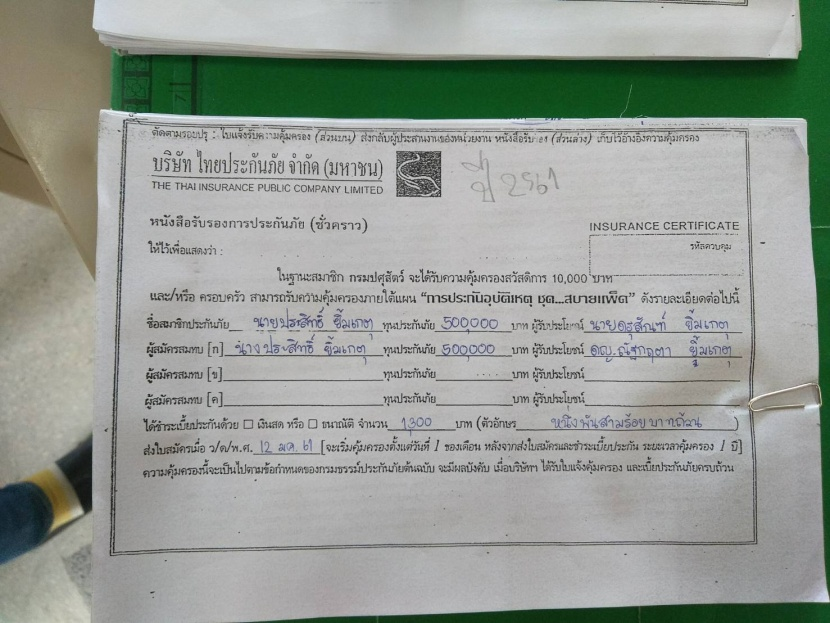 ตัดตามรอยปรุ : ใบแจ้งรับความคุ้มครอง (ส่วนบน) ส่งกลับผู้ประสานงานของหน่วยงาน หนังสือรับรอง (ส่วนล่าง) เก็บไว้อ้างอิงความคุ้มครอง
บริษัท ไทยประกันภัย จำกัด (มหาชน)
THE THAI INSURANCE PUBLIC COMPANY LIMITED
ปี 2561
หนังสือรับรองการประกันภัย (ชั่วคราว)
INSURANCE CERTIFICATE
ให้ไว้เพื่อแสดงว่า :
รหัสควบคุม
ในฐานะสมาชิก กรมปศุสัตว์ จะได้รับความคุ้มครองสวัสดิการ 10,000 บาท
และ/หรือ ครอบครัว สามารถรับความคุ้มครองภายใต้แผน "การประกันอุบัติเหตุ ชุด...สบายแพ็ค" ดังรายละเอียดต่อไปนี้
ชื่อสมาชิกประกันภัย นายประสิทธิ์ ยิ้มเกตุ ทุนประกันภัย 500,000 บาท ผู้รับประโยชน์ นายดรุสัณฑ์ ยิ้มเกตุ
ผู้สมัครสมทบ [ก] นางประสิทธิ์ ยิ้มเกตุ ทุนประกันภัย 500,000 บาท ผู้รับประโยชน์ ดญ.ณัฐกฤตา ยิ้มเกตุ
ผู้สมัครสมทบ [ข] ทุนประกันภัย บาท ผู้รับประโยชน์
ผู้สมัครสมทบ [ค] ทุนประกันภัย บาท ผู้รับประโยชน์
ได้ชำระเบี้ยประกันด้วย ☐ เงินสด หรือ ☐ ธนาณัติ จำนวน 1,300 บาท (ตัวอักษร หนึ่งพันสามร้อยบาทถ้วน )
ส่งใบสมัครเมื่อ ว/ด/พ.ศ. 12 มค. 61 [จะเริ่มคุ้มครองตั้งแต่วันที่ 1 ของเดือน หลังจากส่งใบสมัครและชำระเบี้ยประกัน ระยะเวลาคุ้มครอง 1 ปี]
ความคุ้มครองนี้จะเป็นไปตามข้อกำหนดของกรมธรรม์ประกันภัยต้นฉบับ จะมีผลบังคับ เมื่อบริษัทฯ ได้รับใบแจ้งคุ้มครอง และเบี้ยประกันภัยครบถ้วน